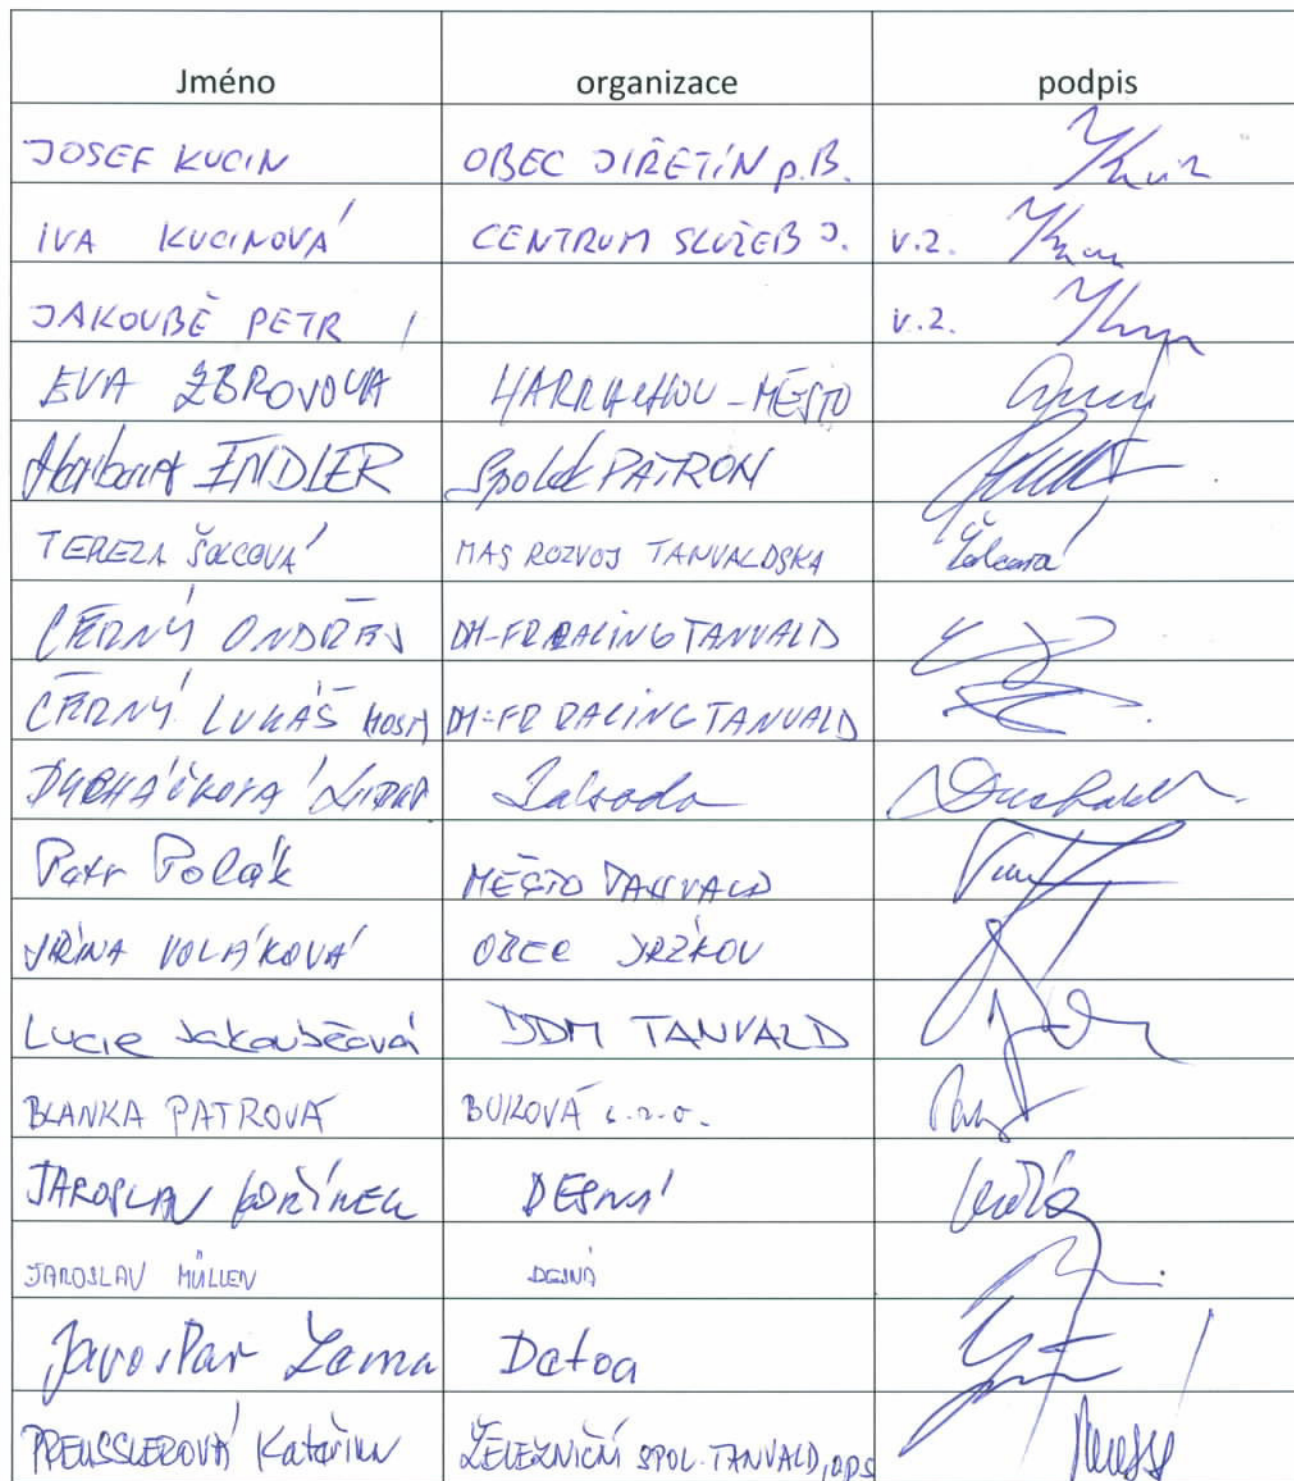 Jméno organizace podpis
JOSEF KUCIN OBEC JIŘETÍN p.B.
IVA KUCINOVÁ CENTRUM SLUŽEB J. v.z.
JAKOUBĚ PETR v.z.
EVA ZBROJOVÁ HARRACHOV - MĚSTO
Herbert ENDLER Spolek PATRON
TEREZA ŠOLCOVÁ MAS ROZVOJ TANVALDSKA Šolcová
ČERNÝ ONDŘEJ DM-FR RACING TANVALD
ČERNÝ LUKÁŠ HOST DM-FR RACING TANVALD
DUCHÁČKOVÁ Zásada
Petr Polák MĚSTO TANVALD
JIŘINA VOLÁKOVÁ OBEC DRŽKOV
Lucie Jakouběová DDM TANVALD
BLANKA PATROVÁ BUKOVÁ s.r.o.
JAROSLAV KOŘÍNEK DESNÁ
JAROSLAV MÜLLER DESNÁ
Jaroslav Zema Detoa
PREUSSLEROVÁ Kateřina ŽELEZNIČNÍ SPOL. TANVALD, OPS